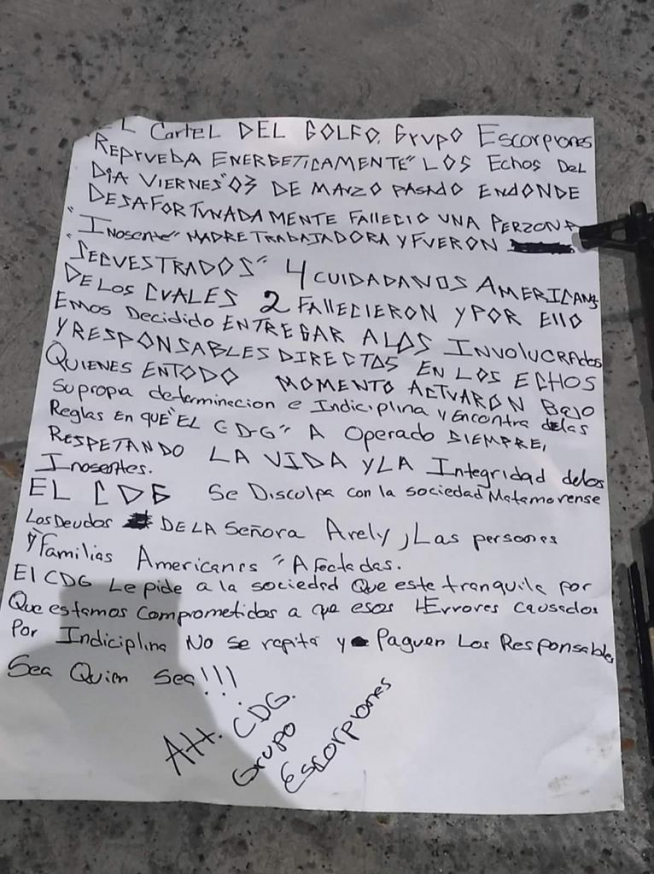 L Cartel DEL GOLFO. Grupo Escorpiones
REPRUEBA ENERGETICAMENTE" LOS Echos Del
DIA VIERNES" 03 DE MARZO PASADO ENDONDE
DESAFORTUNADAMENTE FALLECIO UNA PERZONA
"INOSENTE" MADRE TRABAJADORA Y FUERON
"SECUESTRADOS" 4 CUIDADANOS AMERICANS
DE LOS CUALES 2 FALLECIERON Y POR Ello
Emos Decidido ENTREGAR A LOS INVOLUCRADOS
Y RESPONSABLES DIRECTOS EN LOS ECHOS
QUIENES EN TODO MOMENTO ACTUARON BAJO
Su propa determinacion e Indiciplina y Encontra delas
Reglas En QUE "EL CDG" A Operado SIEMPRE,
RESPETANDO LA VIDA Y LA Integridad delos
Inosentes.
EL CDG Se Disculpa con la sociedad Matamorense
Los Deudos DE LA Señora Arely, Las personas
Y Familias Americanes "Afectadas.
El CDG Le pide a la sociedad Que este tranquila por
Que estamos comprometidos a que esos Errores causados
Por Indiciplina No se repita y Paguen Los Responsables
Sea Quien Sea!!!
Att. CDG.
Grupo
Escorpiones